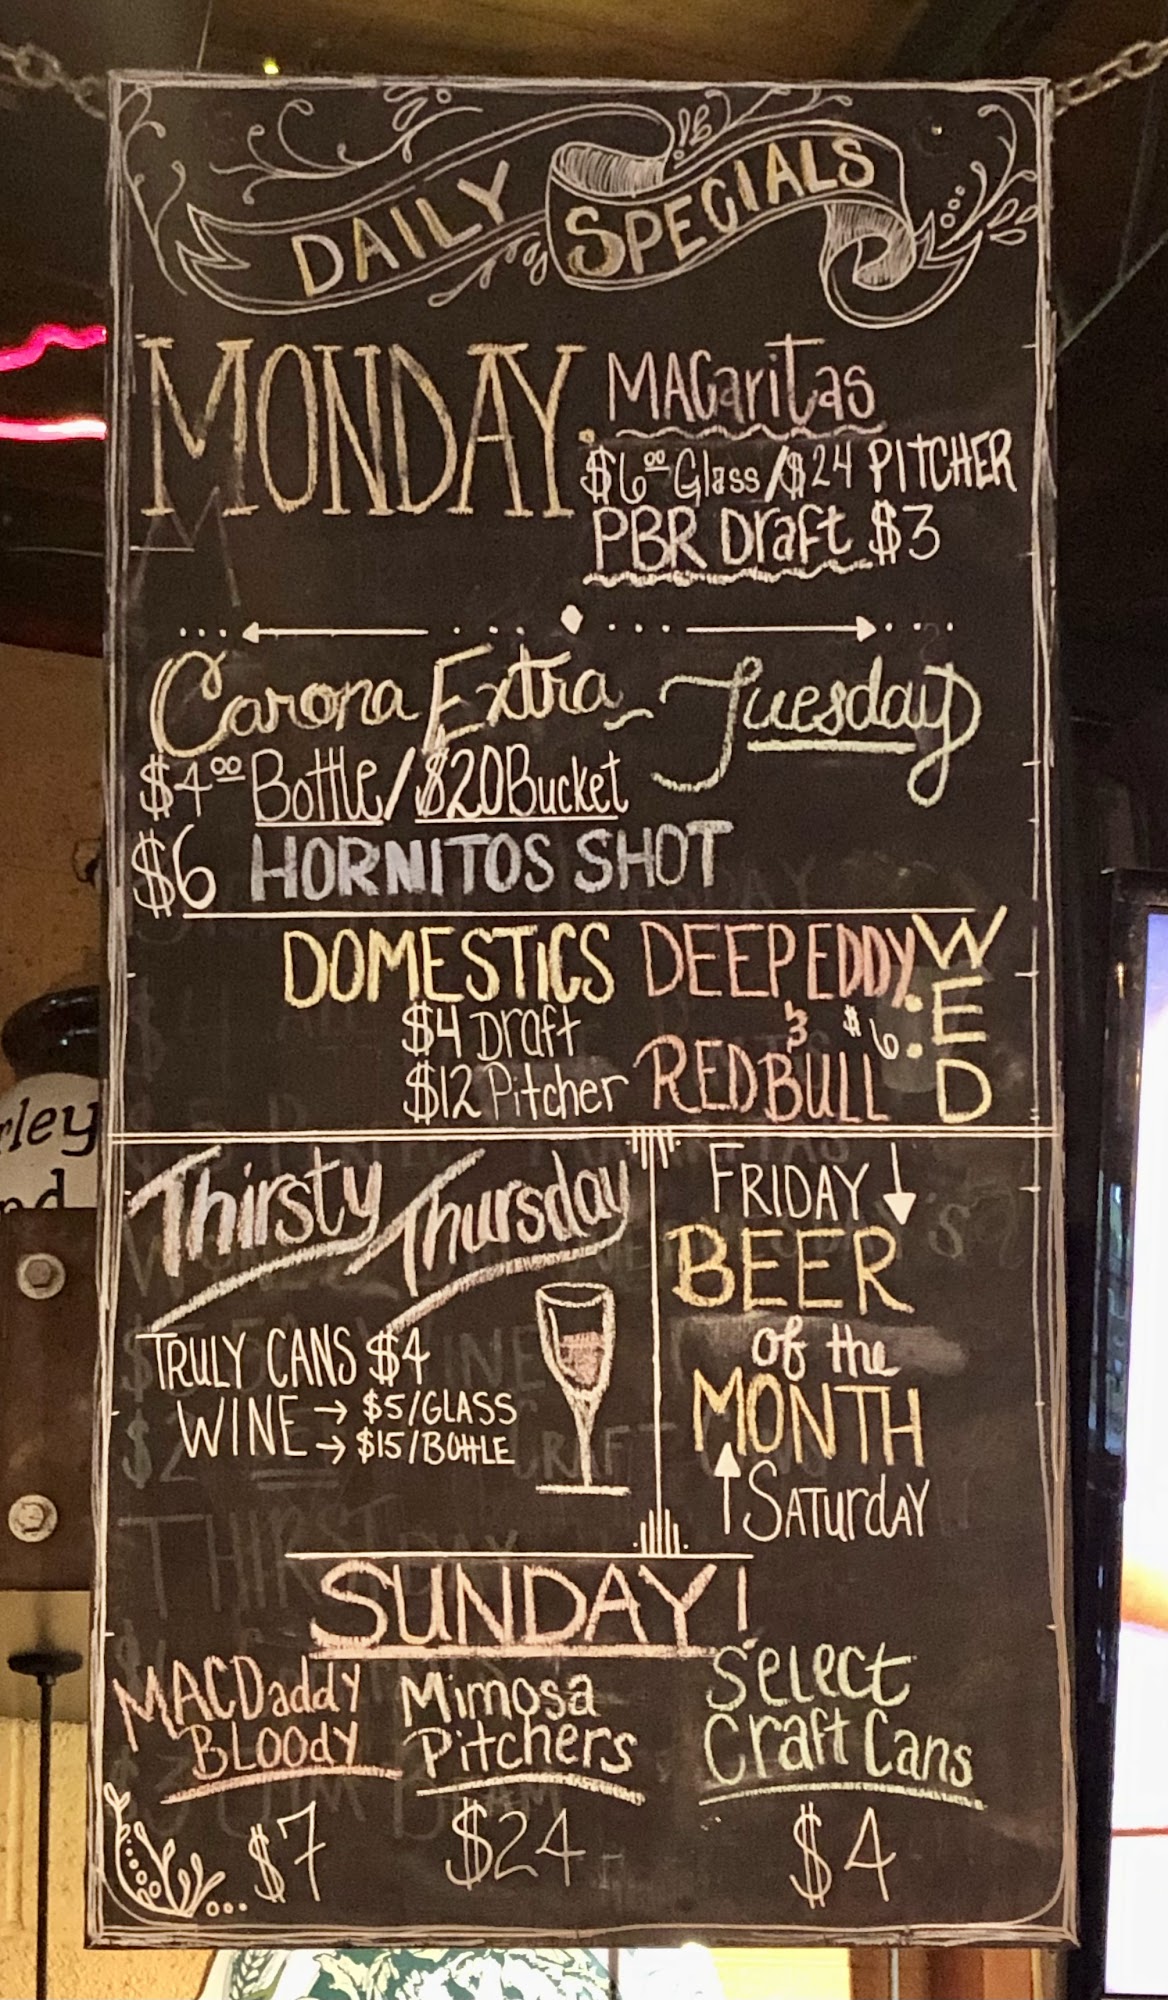 DAILY SPECIALS
MONDAY
MACaritas
$6.00 Glass / $24 PITCHER
PBR Draft $3
Carona Extra
Tuesday
$4.00 Bottle / $20 Bucket
$6 HORNITOS SHOT
DOMESTICS
$4 Draft
$12 Pitcher
DEEP EDDY
& $6
RED BULL
WED
Thirsty Thursday
TRULY CANS $4
WINE → $5/GLASS
→ $15/BOttLE
FRIDAY ↓
BEER
of the
MONTH
↑ SATURdAY
SUNDAY!
MACDaddy
BLOOdY
$7
Mimosa
Pitchers
$24
SELECt
Craft Cans
$4
rley
nd